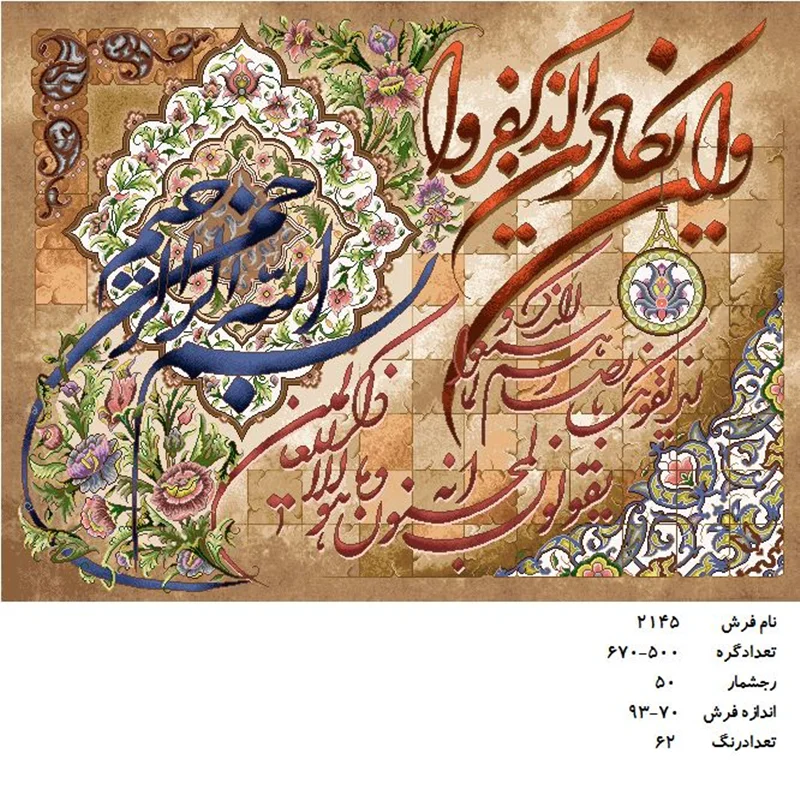 بسم الله الرحمن الرحیم
وان یکاد الذین کفروا
لیزلقونک بابصارهم لما سمعوا الذکر و
یقولون انه لمجنون وما هو الا ذکر للعالمین
نام فرش ۲۱۴۵
تعدادگره ۶۷۰-۵۰۰
رجشمار ۵۰
اندازه فرش ۹۳-۷۰
تعدادرنگ ۶۲